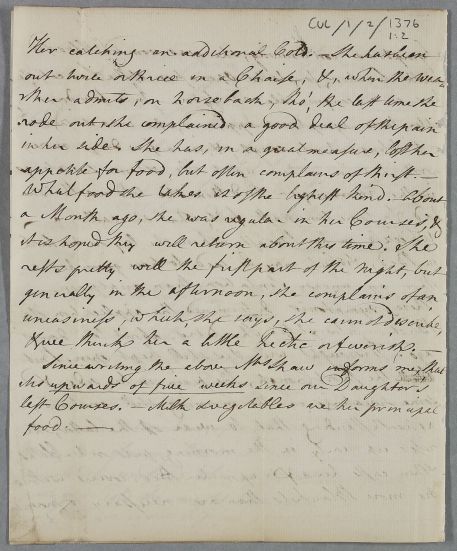 CUL/1/2/1376
1:2
Her catching an additional Cold. — She has been
out twice or thrice in a Chaise, &, when the wea-
ther admits, on horseback, tho', the last time she
rode out she complained a good deal of the pain
in her side. She has, in a great measure, lost her
appetite for food, but often complains of thirst —
What food she takes is of the lightest kind. About
a Month ago, she was regular in her Courses, &
it is hoped they will return about this time. She
rests pretty well the first part of the Night, but
generally in the afternoon, she complains of an
uneasiness, which, she says, she cannot describe,
& we think her a little hectic or feverish. —
Since writing the above Mrs Shaw informs me, that
'tis upwards of five weeks since our Daughter's
last Courses. — Milk & vegetables are her principal
food. —